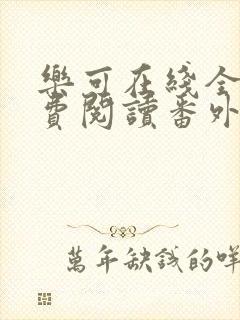 樂可在綫全
費閱讀番外
萬年缺錢的咩